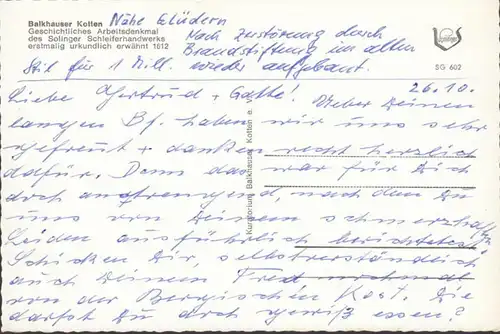 Balkhauser Kotten Nähe Glüdern
Geschichtliches Arbeitsdenkmal
des Solinger Schleiferhandwerks
erstmalig urkundlich erwähnt 1612
Nach Zerstörung durch
Brandstiftung im alten
Stil für 1 Mill. wieder aufgebaut.
SG 602
26.10.
Liebe Gertrud + Gatte! Ueber Deinen
langen Bf. haben wir uns sehr
gefreut + danken recht herzlich
dafür. Denn das war für Dich
doch anstrengend, nach dem Du
uns von Deinem schmerzhaften
Leiden ausführlich berichtetest
Schicken Dir, selbstverständlich
auch Deinem
von der Bergischen Kost. Die
darfst Du doch gewiß essen?
Kuratorium Balkhauser Kotten e. V.